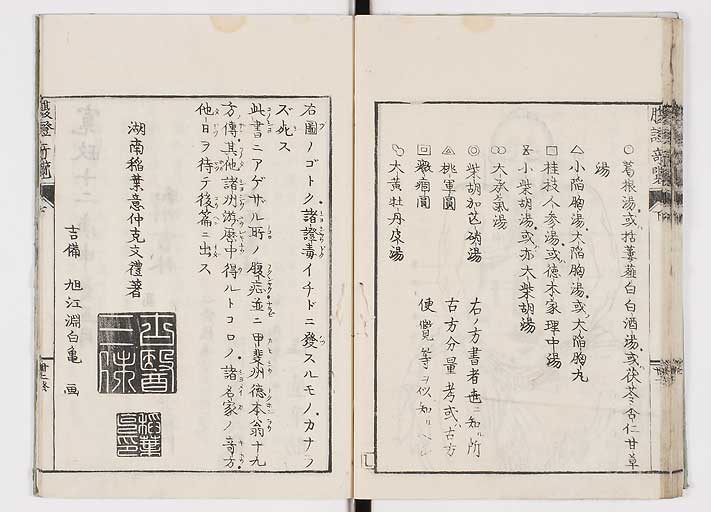 ○葛根湯或括蔞薤白白酒湯或茯苓杏仁甘草
湯
△小陥胸湯大陥胸湯或大陥胸丸
□桂枝人参湯或徳本家理中湯
小柴胡湯或亦大柴胡湯
○○大承氣湯
◎柴胡加芒硝湯
桃軍圓
回癥痛間
大黄牡丹皮湯
右ノ方書者世ニ知ル所
古方分量考或古方
便覽等ヲ以知ルヘシ
右圖ノゴトク諸證毒イチドニ發スルモノカナラ
ズ死ス
此書ニアゲザル所ノ腹症並ニ甲斐州徳本翁十九
方傳其他諸州游歴中得ルトコロノ諸名家ノ奇方
他日ヲ待テ後篇ニ出ス
湖南稲葉意仲克文禮著
吉備 旭江淵白亀 画
腹證奇覽